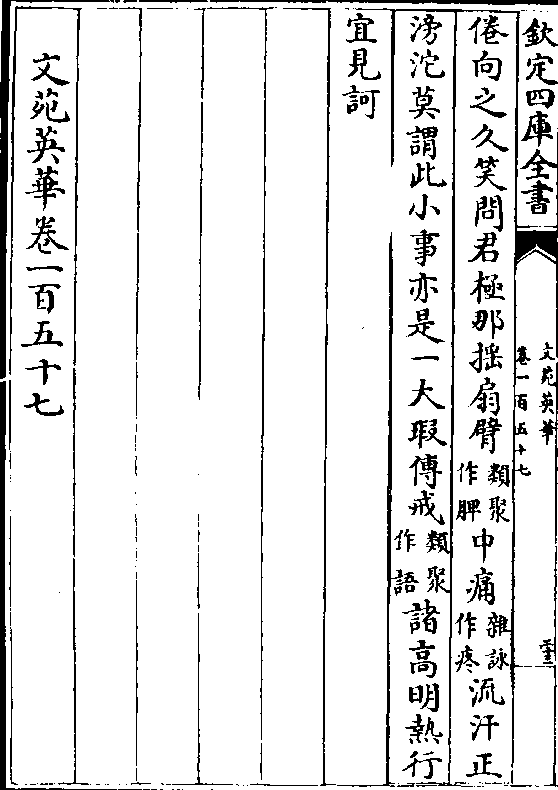 欽定四庫全書
文苑英華
卷一百五十七
倦向之久笑問君極那揺扇臂類聚作脾中痛雜詠作疼流汗正
滂沱莫謂此小事亦是一大瑕傳戒類聚作語諸高明熱行
宜見訶
文苑英華卷一百五十七